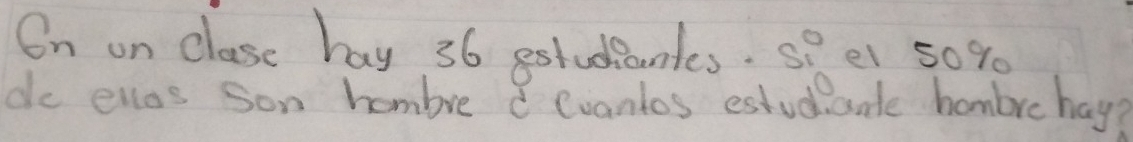 En un clase hay 36 estudiantes. Si el 50%
de ellos son hombre ¿ cuantos estudiante hombre hay?